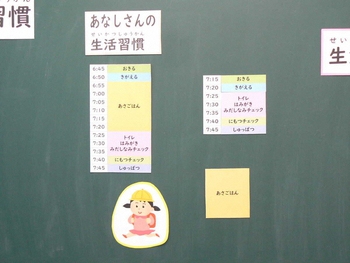 習慣
あなしさんの
せいかつしゅうかん
生活習慣
せい
生
6:45 おきる
6:50 きがえる
6:55
7:00
7:05
7:10 あさごはん
7:15
7:20
7:25 トイレ
7:30 はみがき
7:35 みだしなみチェック
7:40 にもつチェック
7:45 しゅっぱつ
7:15 おきる
7:20 きがえる
7:25 トイレ
7:30 はみがき
7:35 みだしなみチェック
7:40 にもつチェック
7:45 しゅっぱつ
あさごはん